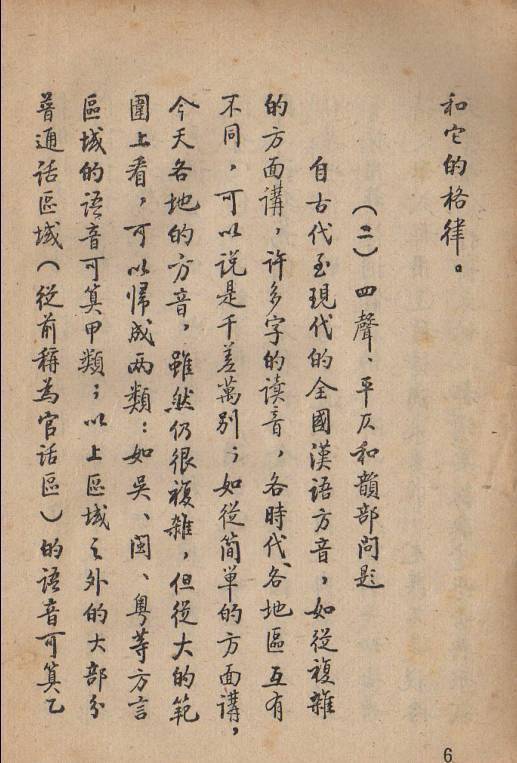 和它的格律。
（二）四聲、平仄和韻部問題
自古代至現代的全國漢語方音，如從複雜
的方面講，許多字的读音，各時代、各地區互有
不同，可以说是千差萬别；如從简單的方面講，
今天各地的方音，雖然仍很複雜，但從大的範
圍上看，可以帰成两類：如吴、闽、粤等方言
區域的语音可算甲類；以上區域之外的大部分
普通话區域（從前稱為官话區）的语音可算乙
6